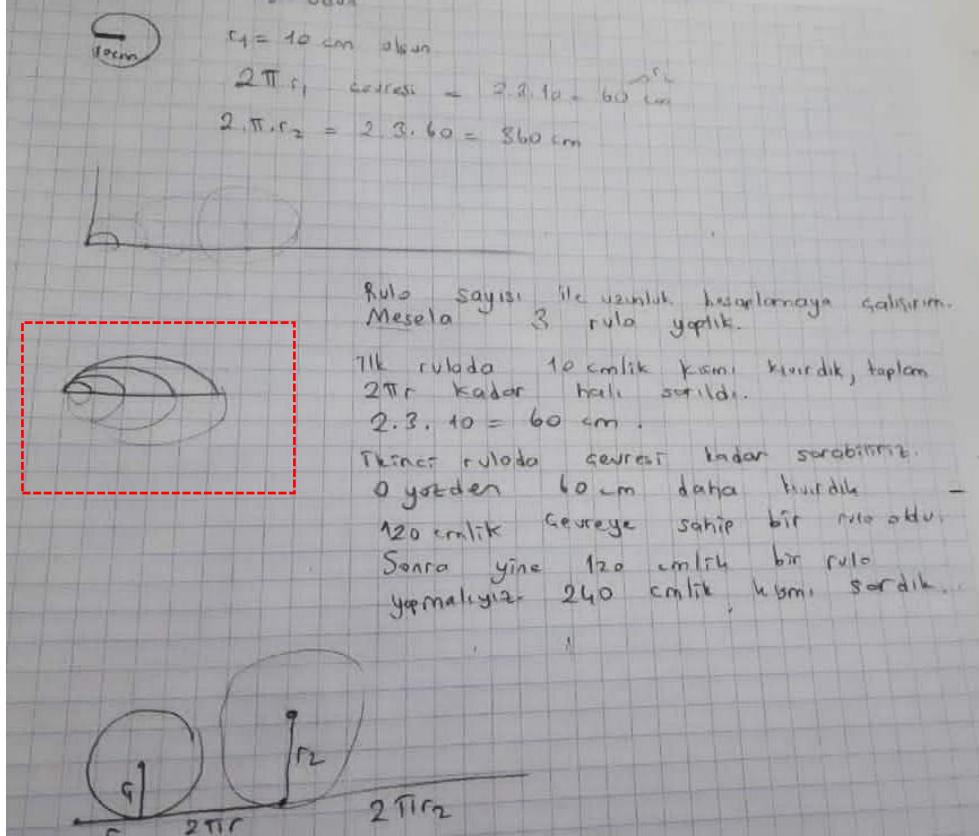 10cm
r₁ = 10 cm olsun
2πr₁ çevresi = 2.3.10 = 60 cm
r₂
2.π.r₂ = 2.3.60 = 360 cm
Rulo sayısı ile uzunluk hesaplamaya çalışırım.
Mesela 3 rulo yaptık.
İlk ruloda 10 cmlik kısmı kıvırdık, toplam
2πr kadar halı sarıldı.
2.3.10 = 60 cm.
İkinci ruloda çevresi kadar sarabiliriz.
O yüzden 60 cm daha kıvırdık
120 cmlik çevreye sahip bir rulo oldu.
Sonra yine 120 cmlik bir rulo
yapmalıyız. 240 cmlik kısmı sardık.
r₂
2πr
2πr₂